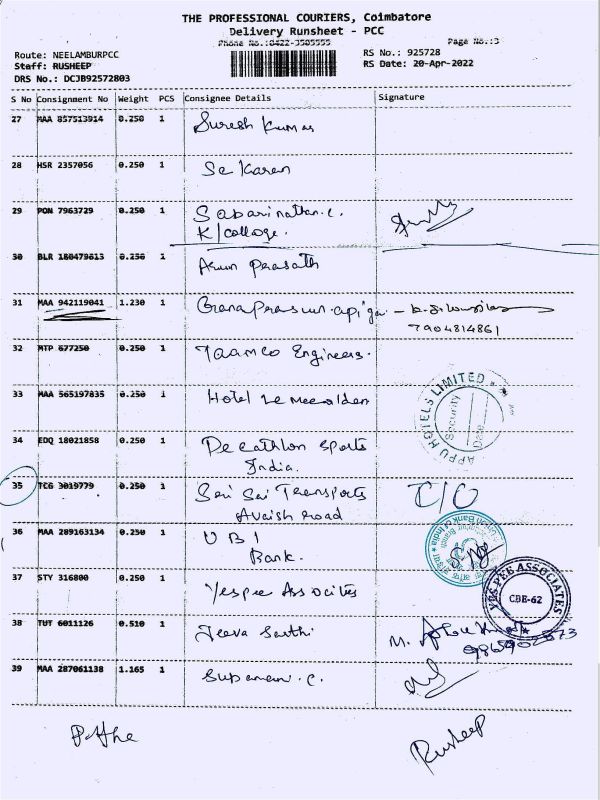 THE PROFESSIONAL COURIERS, Coimbatore
Delivery Runsheet - PCC
Phone No.:0422-3505555 Page No.:3
Route: NEELAMBURPCC RS No.: 925728
Staff: RUSHEEP RS Date: 20-Apr-2022
DRS No.: DCJB92572803
S No Consignment No Weight PCS Consignee Details Signature
27 MAA 857513914 0.250 1 Suresh Kumar
28 HSR 2357056 0.250 1 Se Karan
29 PON 7963729 0.250 1 Sabarinathan.c.
K/college.
30 BLR 180479613 0.250 1 Arun Prasath
31 MAA 942119041 1.230 1
7904814861
32 MTP 677250 0.250 1 Taamco Engineers.
33 MAA 565197835 0.250 1 Hotel Le Meeriden
APPU HOTELS LIMITED
Security
Date
34 EDQ 18021858 0.250 1 Decathlon Sports
India.
35 TCG 3019779 0.250 1 Sri Sai Transports
Avaish road
36 MAA 289163134 0.250 1 U B I
Bank.
Union Bank of India
37 STY 316800 0.250 1 Yespee Assocites
YES PEE ASSOCIATES
CBE-62
38 TUT 6011126 0.510 1 Jeeva Sarthi
39 MAA 287061138 1.165 1
Rusheep